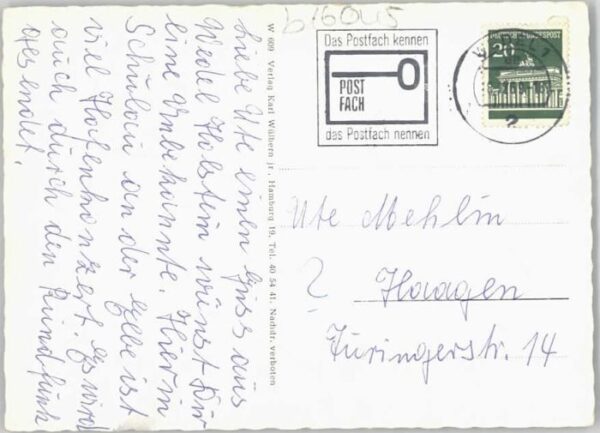 b160U5
Liebe Ute einen Gruss aus
Wedel Holstein wünst Dir
eine Unbekannte. Hier in
Schulau an der Elbe ist
viel Hafenkonzert. Es wird
auch durch den Rundfunk
gesendet.
W 609 Verlag Karl Wülbern jr., Hamburg 19, Tel. 40 54 41. Nachdr. verboten
Das Postfach kennen
POST
FACH
das Postfach nennen
20
DEUTSCHE BUNDESPOST
2
Ute Mehlin
? Haagen
Türingerstr. 14